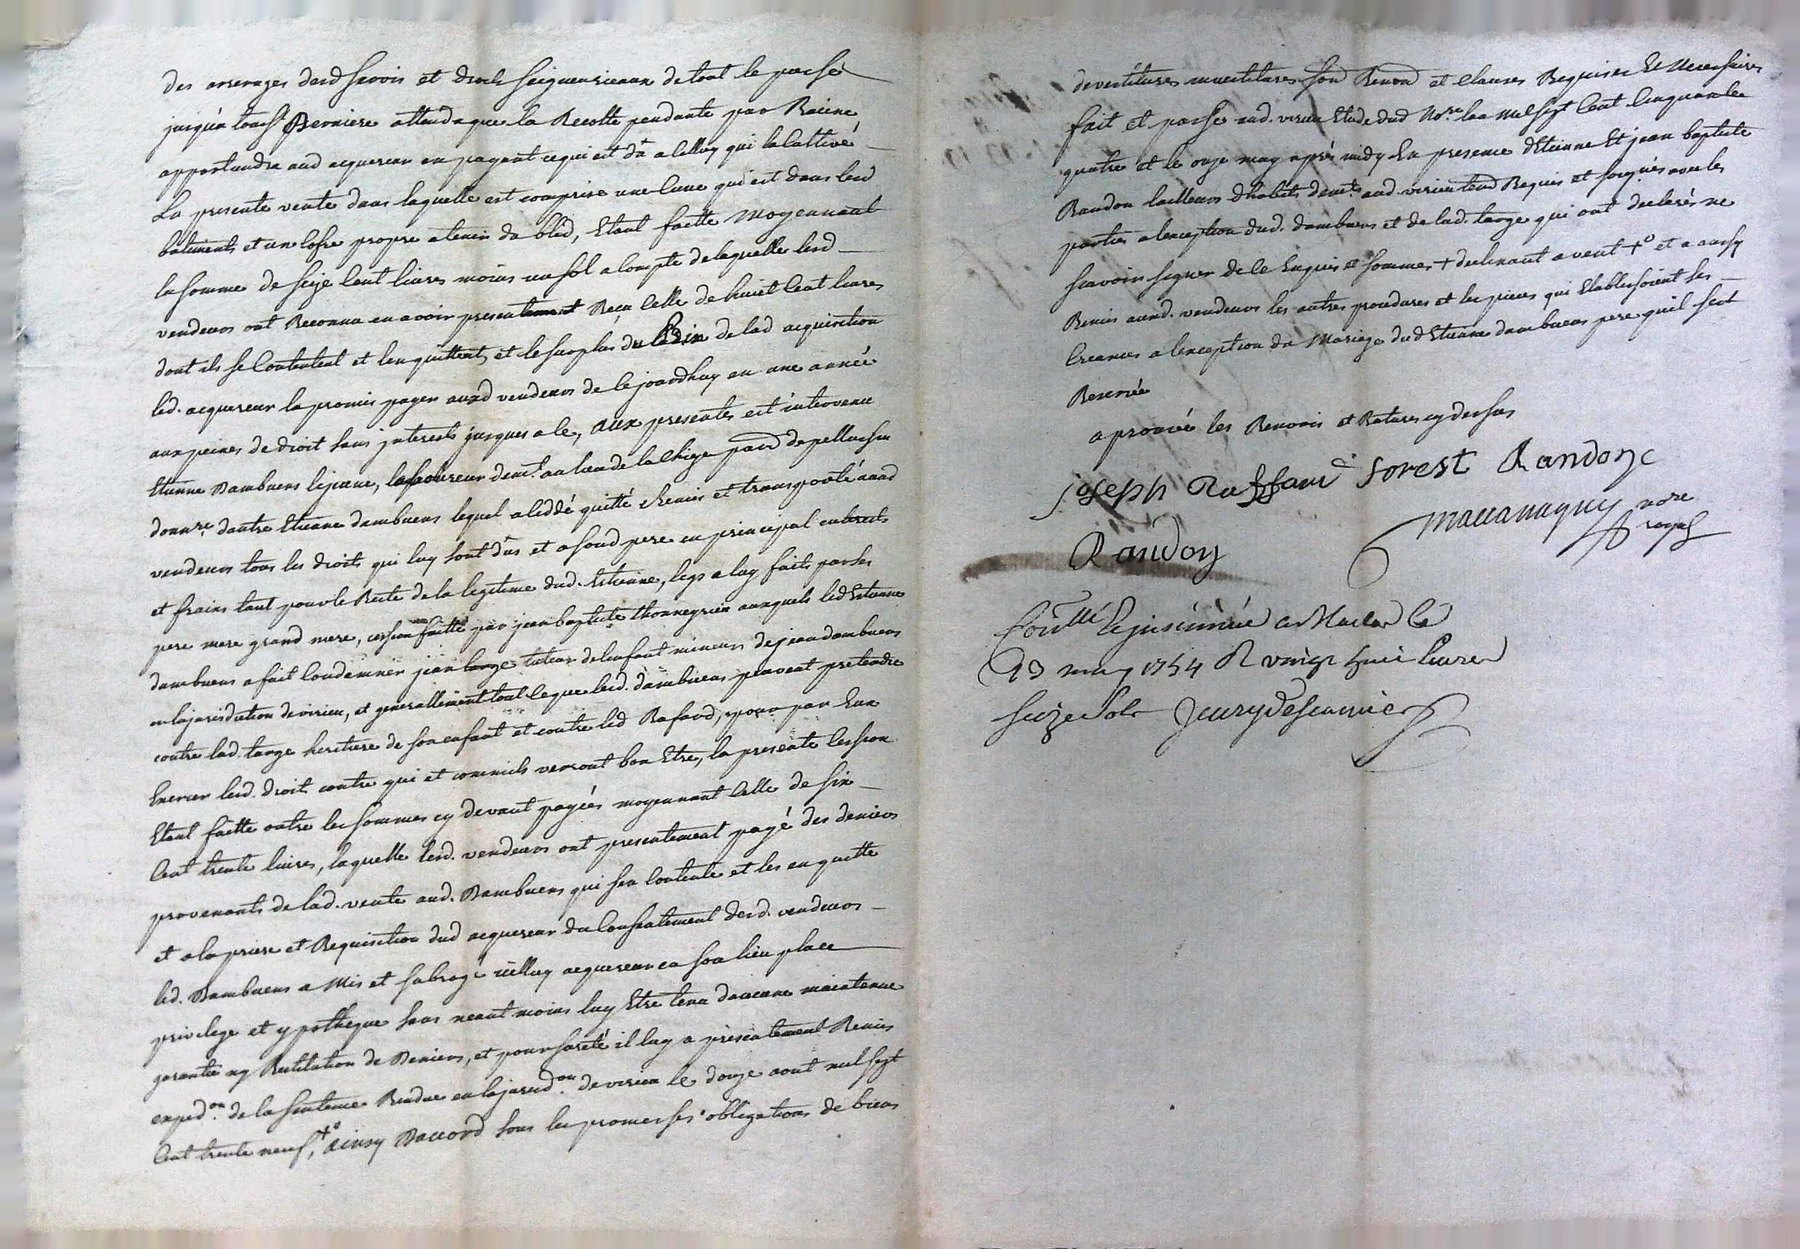 des arrerages desd servis et droits seigneuriaux de tout le passé
jusqu'a toust Derniere attendu que la Recolte pendante par Racine
appartiendra aud acquereur en payant ce qui est dû a celluy qui la Cultivé
La presente vente dans laquelle est comprise une Cuve qui est dans lesd
batiments et un cofre propre a tenir du bled, Etant faitte moyennant
la somme de seize Cent livres moins un sol a Compte de laquelle lesd
vendeurs ont Reconnu en avoir presentement Receu Celle de huict Cent livres
dont ils se Contentent et l'en quittent, et le surplus du Prix de lad acquisition
led. acquereur la promis payer auxd vendeurs de cejourdhuy en une année
aux peines de droit sans jnterests jusques a ce, Aux presentes est intervenu
Etienne Dambuens lejeune, laboureur demt. au lieu de la Chize parr de pellussin
donnre. dautre Etienne dambuens lequel a Ceddé quitté Remis et transporté auxd
vendeurs tous les droits qui luy sont dus et a sond pere en principal interests
et frais tant pour le Reste de la legitime dud. Estienne, legs a luy faits par ses
pere mere grand mere, cession faitte par jean baptiste thonnerieu auxquels led Estienne
dambuens a fait Condamner jean tange tuteur de lenfant mineur de jean dambuens
en la jurisdiction de virieu, et generallement tout ce que lesd. dambuens peuvent pretendre
contre lad. tange heritiere de son enfant et contre led Rafard, pour par Eux
Exercer lesd. droits contre qui et comme ils verront bon Etre, la presente Cession
Etant faitte outre les sommes cy devant payées moyennant Celle de six
Cent trente livres, laquelle lesd. vendeurs ont presentement payé des deniers
provenants de lad. vente aud. Dambuens qui s'en Contente et les en quitte
et a la priere et Requisition dud acquereur du Consentement desd. vendeurs
led. Dambuens a Mis et subrogé icelluy acquereur en son lieu place
privilege et ypotheque sans neantmoins luy Etre tenu daucune maintenue
garantie ny Restitution de Deniers, et pour sureté il luy a presentement Remis
expedon. de la sentence Rendue en la jurisdon. de virieu le douze aout mil sept
Cent trente neuf, +o ainsy Daccord sous les promesses obligations de biens
devestitures investitures son Renond et clauses Requises Et Necessaires
fait et passé aud. virieu Etude dud Nore. lan Mil sept Cent Cinquante
quatre et le onze may après midy En presence d'Etienne Et jean baptiste
Randon tailleurs dhabits demts. aud. virieu temd Requis et soussignés avec les
parties a l'exception dud. dambuens et de lad. tange qui ont declarés ne
scavoir signer de ce Enquis et sommes + declinant avent +o et a aussy
Remis auxd. vendeurs les autres procedures et les pieces qui Etablissoient ses
Creances a lexception du Mariage dud Etienne dambuens pere qu'il s'est
Reservée
aprouvée les Renvois et Ratures cy dessus
joseph Raffard Forest Randon
Maccanaguy nore royal
Randon
Conlle. & jnsinué a Maclas le
13 may 1754 R vingt huit livres
seize sols